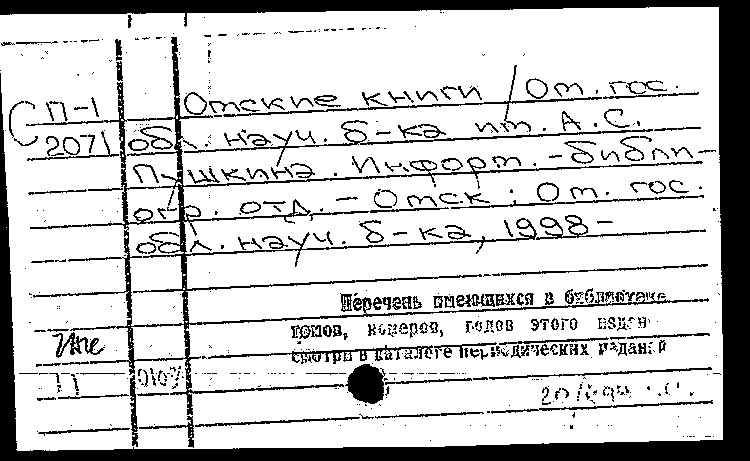 П-1 Омские книги / Ом. гос.
2071 обл. науч. б-ка им. А.С.
Пушкина. Информ.-библи-
огр. отд. – Омск : Ом. гос.
обл. науч. б-ка, 1998-
Перечень имеющихся в библиотеке
томов, номеров, годов этого издан
смотри в каталоге периодических изданий
П 0107